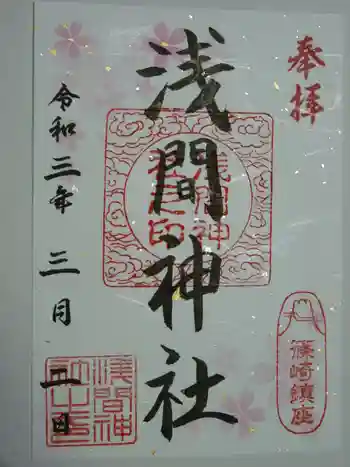 奉拝
篠崎鎮座
浅間神社
浅間神
社之印
浅間神
社之印
令和三年三月二日